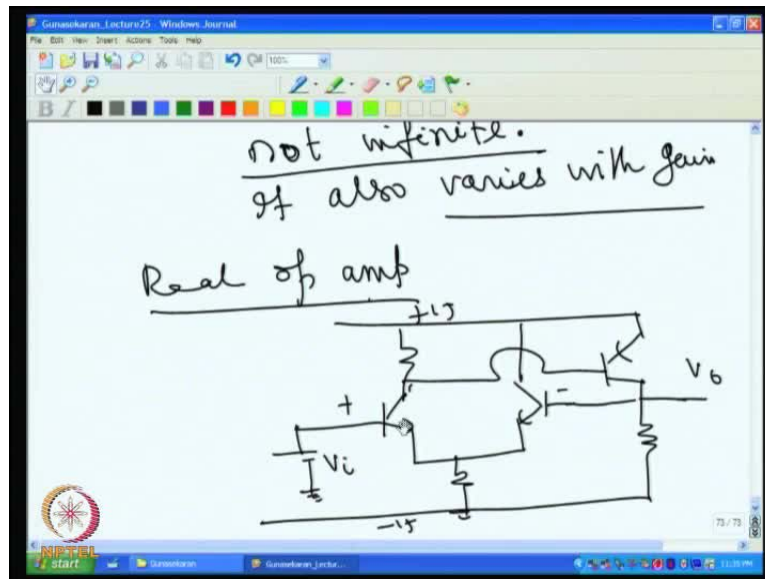 Gunasekaran_Lecture25 - Windows Journal
File Edit View Insert Actions Tools Help
100%
B I
not infinite.
It also varies with gain
Real op amp
+15
+
-
Vo
Vi
-15
73 / 73
NPTEL
start
Gunasekaran
Gunasekaran_Lectur...
11:35 PM